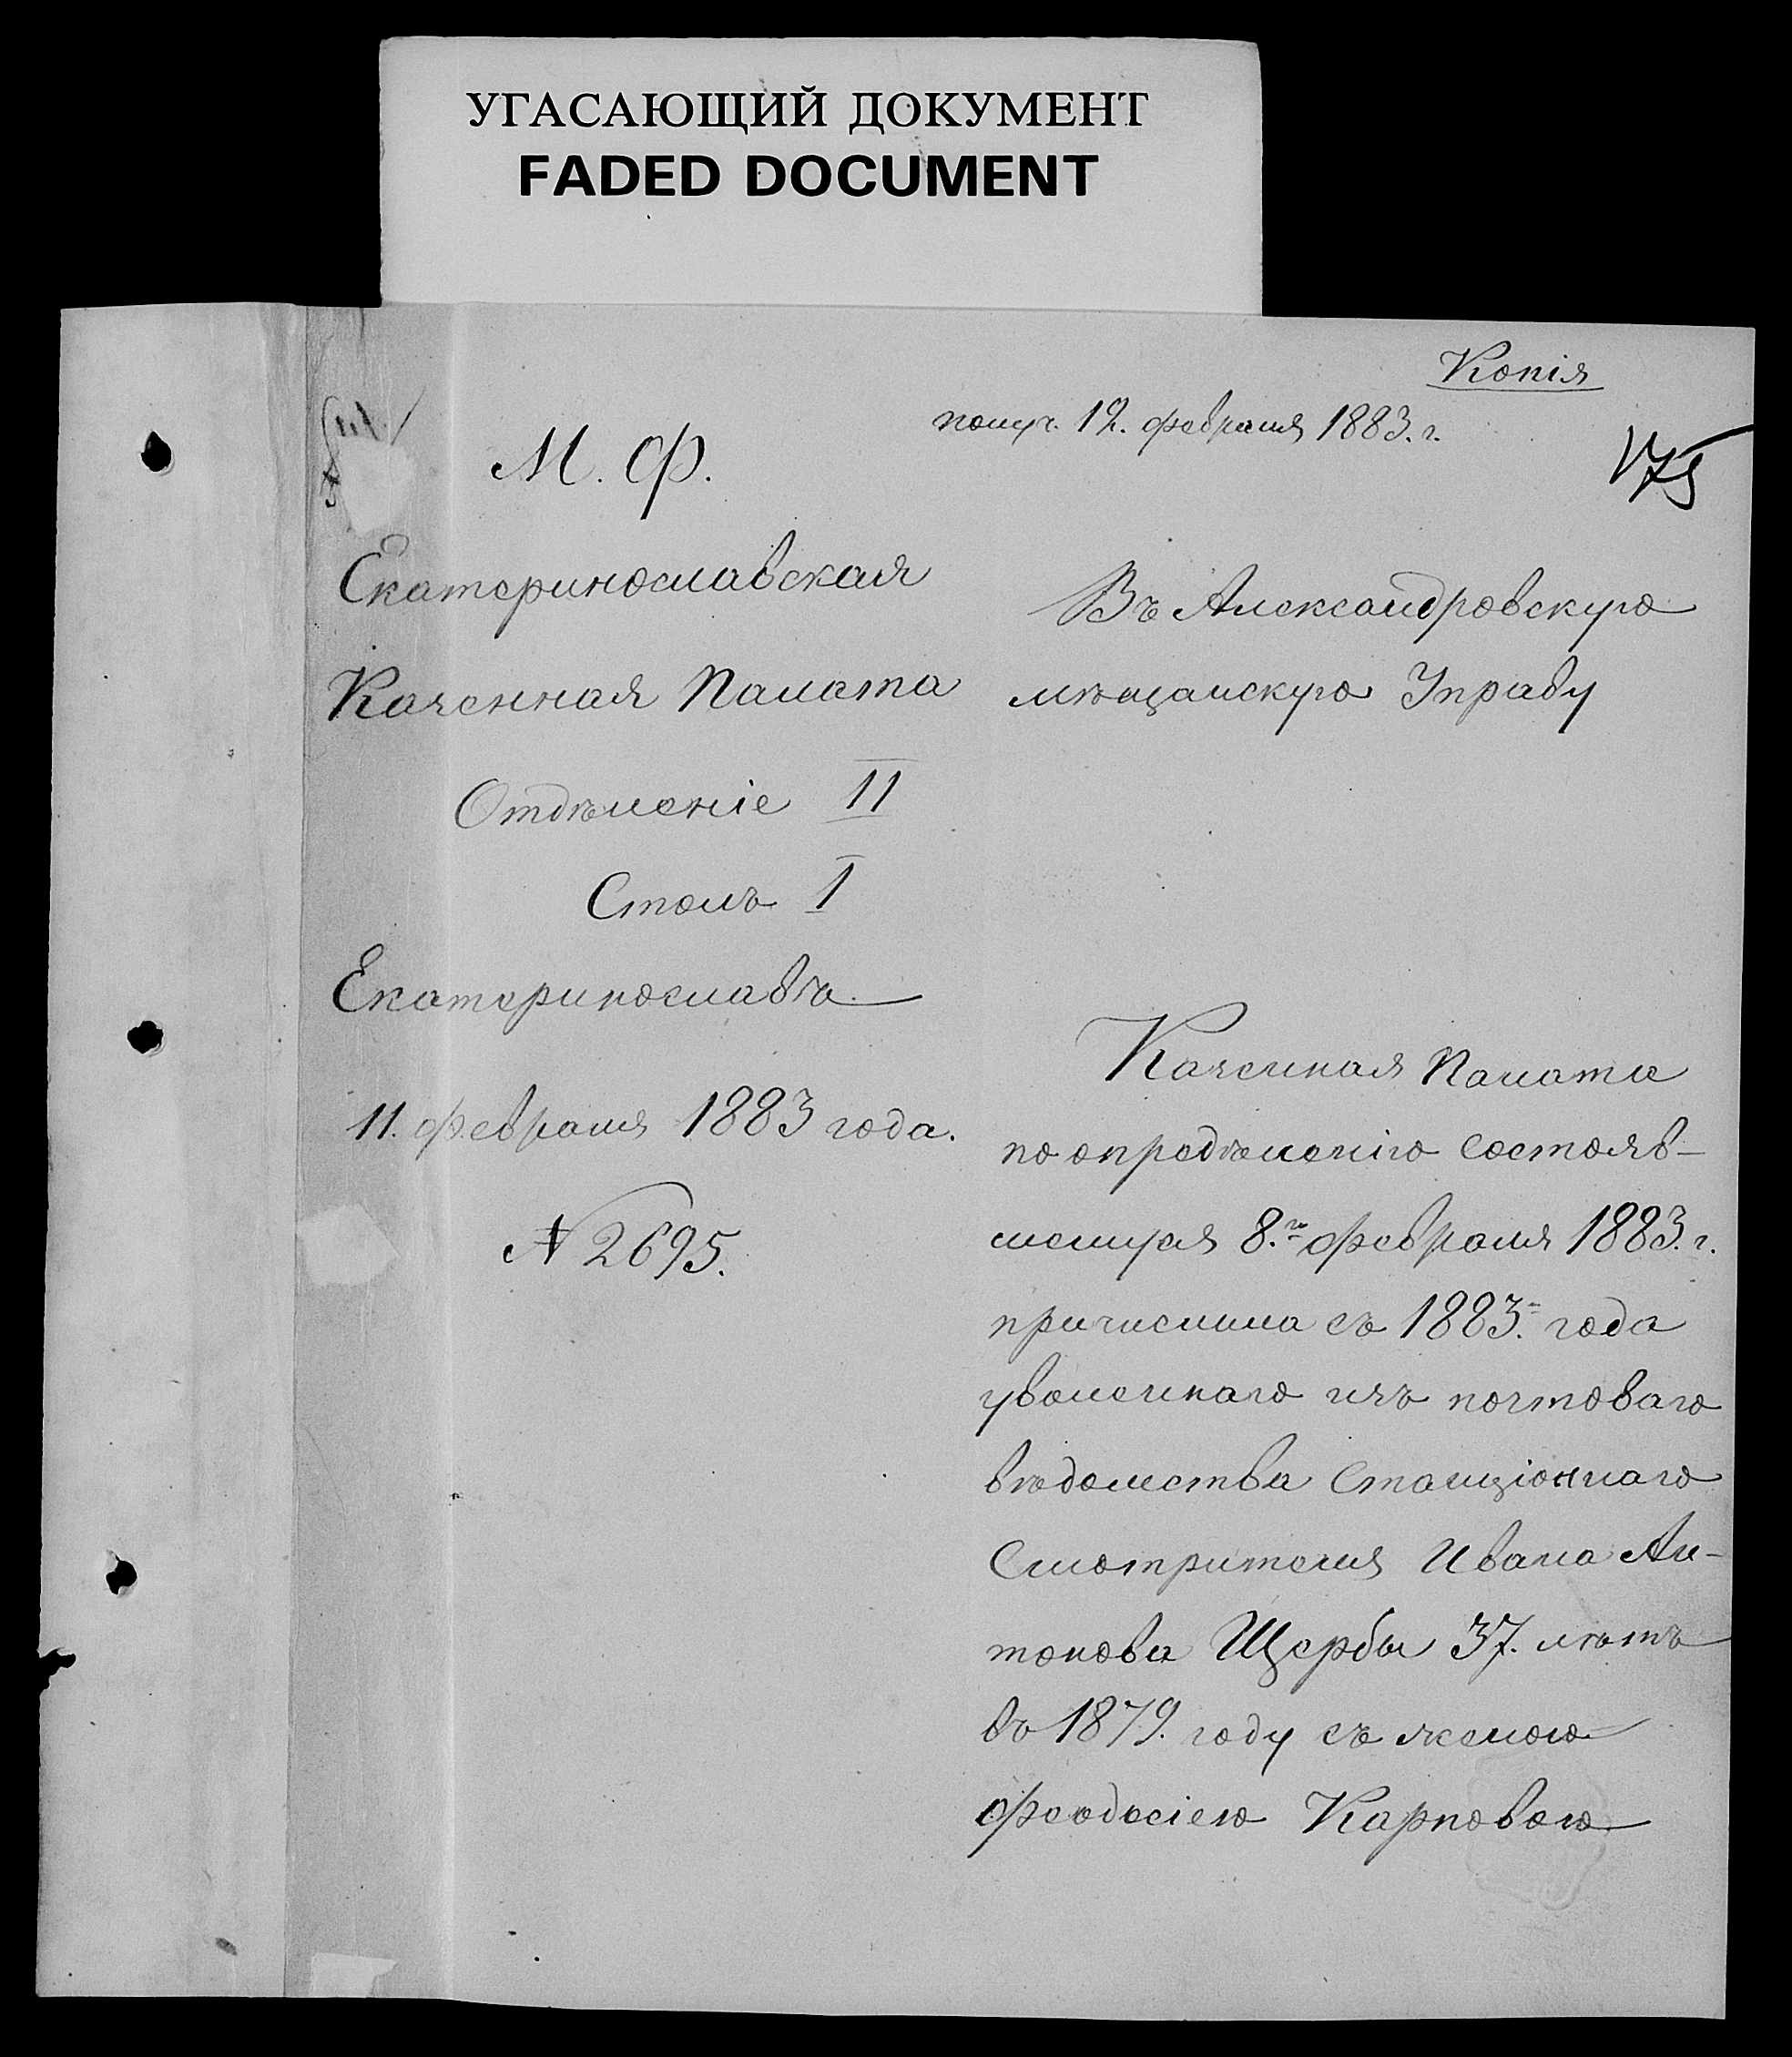 УГАСАЮЩИЙ ДОКУМЕНТ
FADED DOCUMENT
Копія
получ. 12. февраля 1883. г.
175
М. Ф.
Екатеринославская
Казенная Палата
Отдѣленіе II
Столъ I
Екатеринославъ
11. февраля 1883 года.
№ 2695.
Въ Александровскую
мѣщанскую Управу
Казенная Палата
по опредѣленію состояв-
шемуся 8.го февраля 1883. г.
причислила съ 1883. года
уволеннаго изъ почтоваго
вѣдомства Станціоннаго
Смотрителя Ивана Ан-
тонова Щербы 37. лѣтъ
въ 1879. году съ женою
Феодосіею Карповою